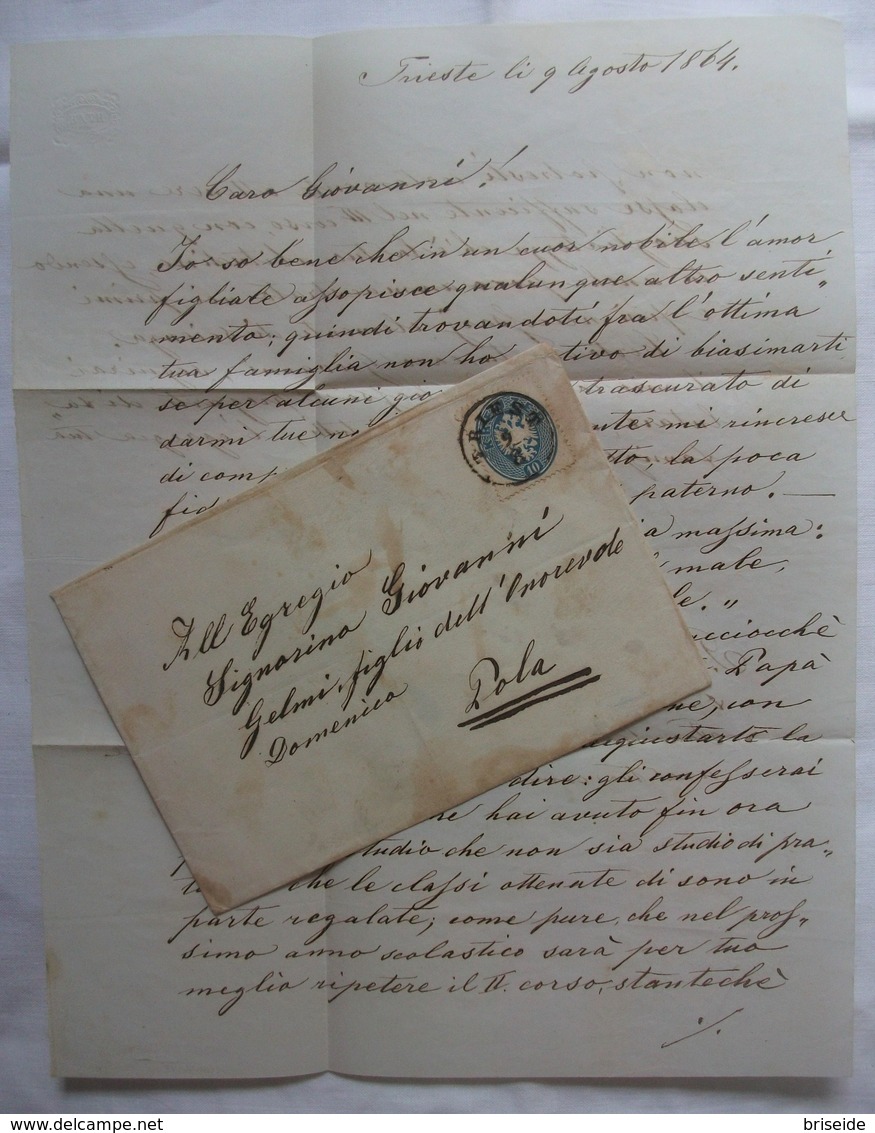 Trieste li 9 Agosto 1864.
Caro Giovanni!
Io so bene che in un cuor nobile l'amor
figliale assopisce qualunque altro senti„
mento; quindi trovandoti fra l'ottima
tua famiglia non ho tivo di biasimarti
se per alcuni gio trascurato di
darmi tue n nte mi rincresce
di comp tto, la poca
fid paterno. —
a massima:
male,
le. „
acciocchè
Papà
ne, con
aggiustarti la
dire: gli confesserai
he hai avuto fin ora
tudio che non sia studio di pra„
t che le classi ottenute di sono in
parte regalate; come pure, che nel pros„
simo anno scolastico sarà per tuo
meglio ripetere il II. corso, stantechè
./.
TRIEST
9
8
10
All Egregio
Signorino Giovanni
Gelmi, figlio dell'Onorevole
Domenico
Pola
delcampe.net
briseide